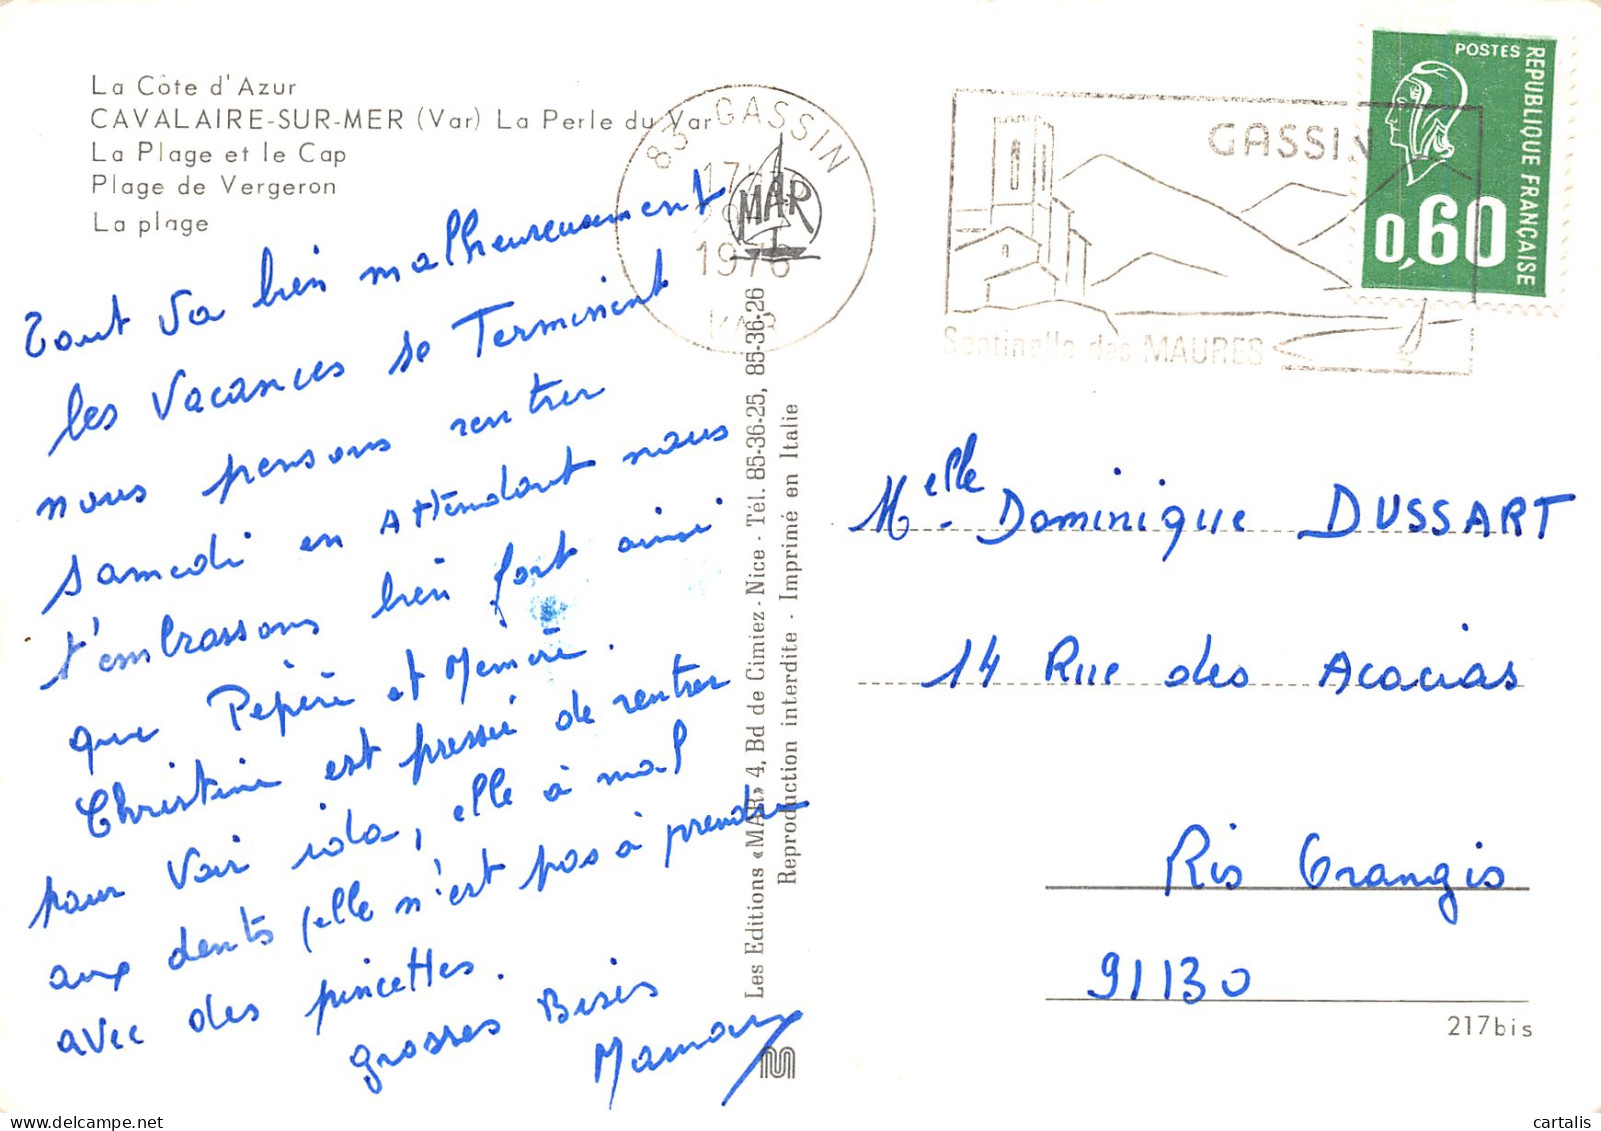 La Côte d'Azur
CAVALAIRE-SUR-MER (Var) La Perle du Var
La Plage et le Cap
Plage de Vergeron
La plage
Tout va bien malheureusement
les vacances se Terminent
nous pensons rentrer
samedi en Attendant nous
t'embrassons bien fort ainsi
que Pépère et Mémère.
Christine est pressée de rentrer
pour voir isola, elle à mal
aux dents (elle n'est pas à prendre
avec des pincettes.
grosses Bises
Maman
83 GASSIN
17H
1976
VAR
MAR
Les Editions «MAR» 4, Bd de Cimiez - Nice - Tél. 85-36-25, 85-36-26
Reproduction interdite - Imprimé en Italie
GASSIN
Sentinelle des MAURES
POSTES
REPUBLIQUE FRANÇAISE
0,60
Melle Dominique DUSSART
14 Rue des Acacias
Ris Orangis
91130
217bis
cartalis